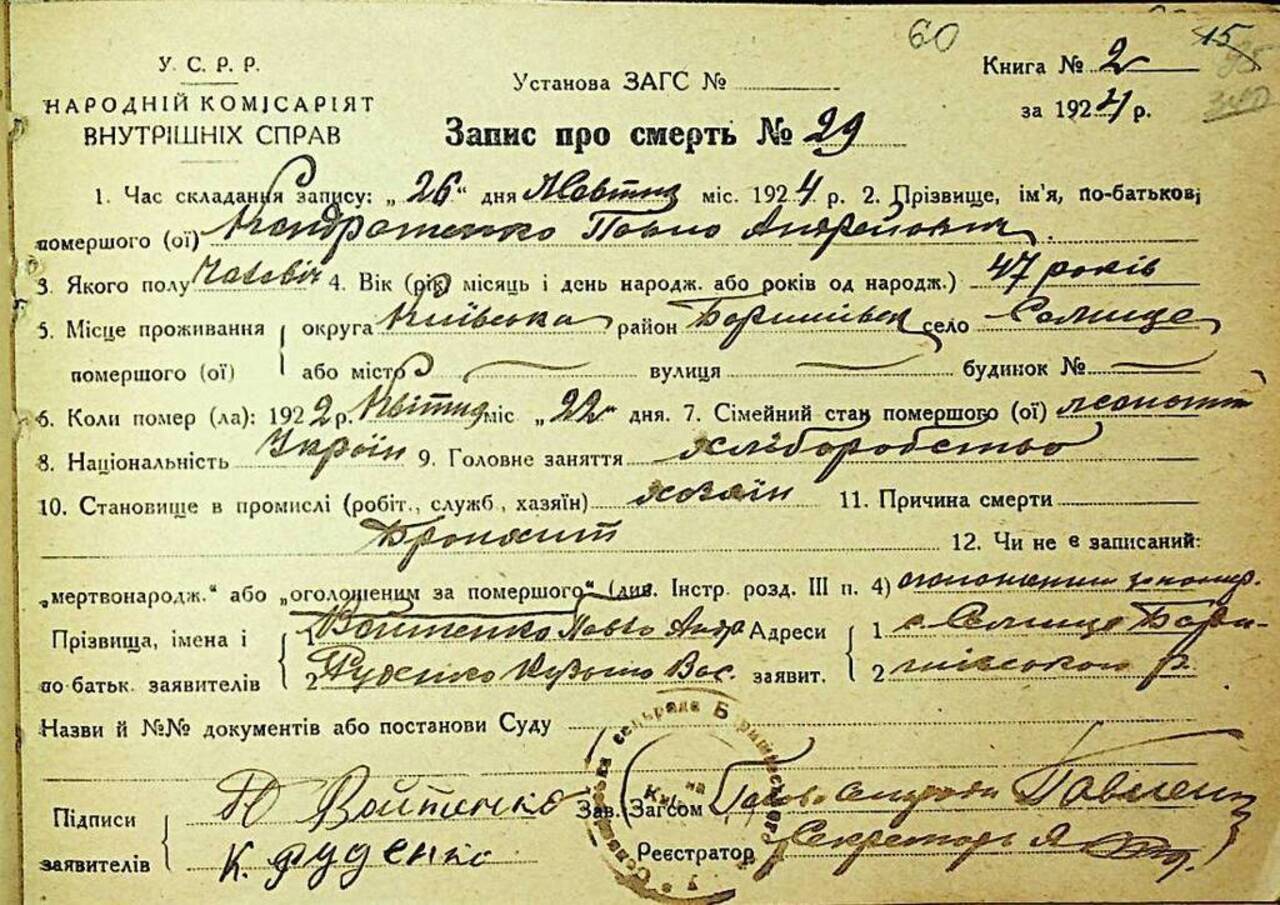 60 15
У. С. Р. Р. Установа ЗАГС № Книга № 2
НАРОДНІЙ КОМІСАРІЯТ за 1924 р.
ВНУТРІШНІХ СПРАВ Запис про смерть № 29
1. Час складання запису: „ 26 “ дня Жовтня міс. 1924 р. 2. Прізвище, ім'я, по-батькові
помершого (ої) Кондратенко Павло Андрейович
3. Якого полу Чоловіч 4. Вік (рік місяць і день народж. або років од народж.) 47 років
5. Місце проживання округа Київська район село Селище
помершого (ої) або місто вулиця будинок №
6. Коли помер (ла): 1922 р. Квітня міс „ 22 “ дня. 7. Сімейний стан помершого (ої)
8. Національність Україн 9. Головне заняття хліборобство
10. Становище в промислі (робіт., служб., хазяїн) хозяїн 11. Причина смерти
Бронхит 12. Чи не є записаний:
„мертвонародж.“ або „оголошеним за помершого“ (див. Інстр. розд. III п. 4)
Прізвища, імена і 1 Войтенко Павло Андр Адреси 1 с. Селище
по-батьк. заявителів 2 Руденко Кузьма Вас. заявит. 2
Назви й №№ документів або постанови Суду
Підписи П Войтенко Зав. Загсом Голова сільради
заявителів К. Руденко Реєстратор Секретарь